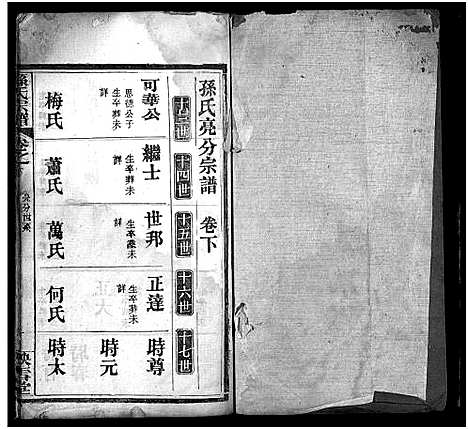 孫氏亮分宗譜 卷下
十三世
十四世
十五世
十六世
十七世
可華公
恩德公子
生卒葬未
詳
繼士
生卒葬未
詳
世邦
生卒葬未
詳
正達
生卒葬未
詳
時尊
時元
時太
梅氏
蕭氏
萬氏
何氏